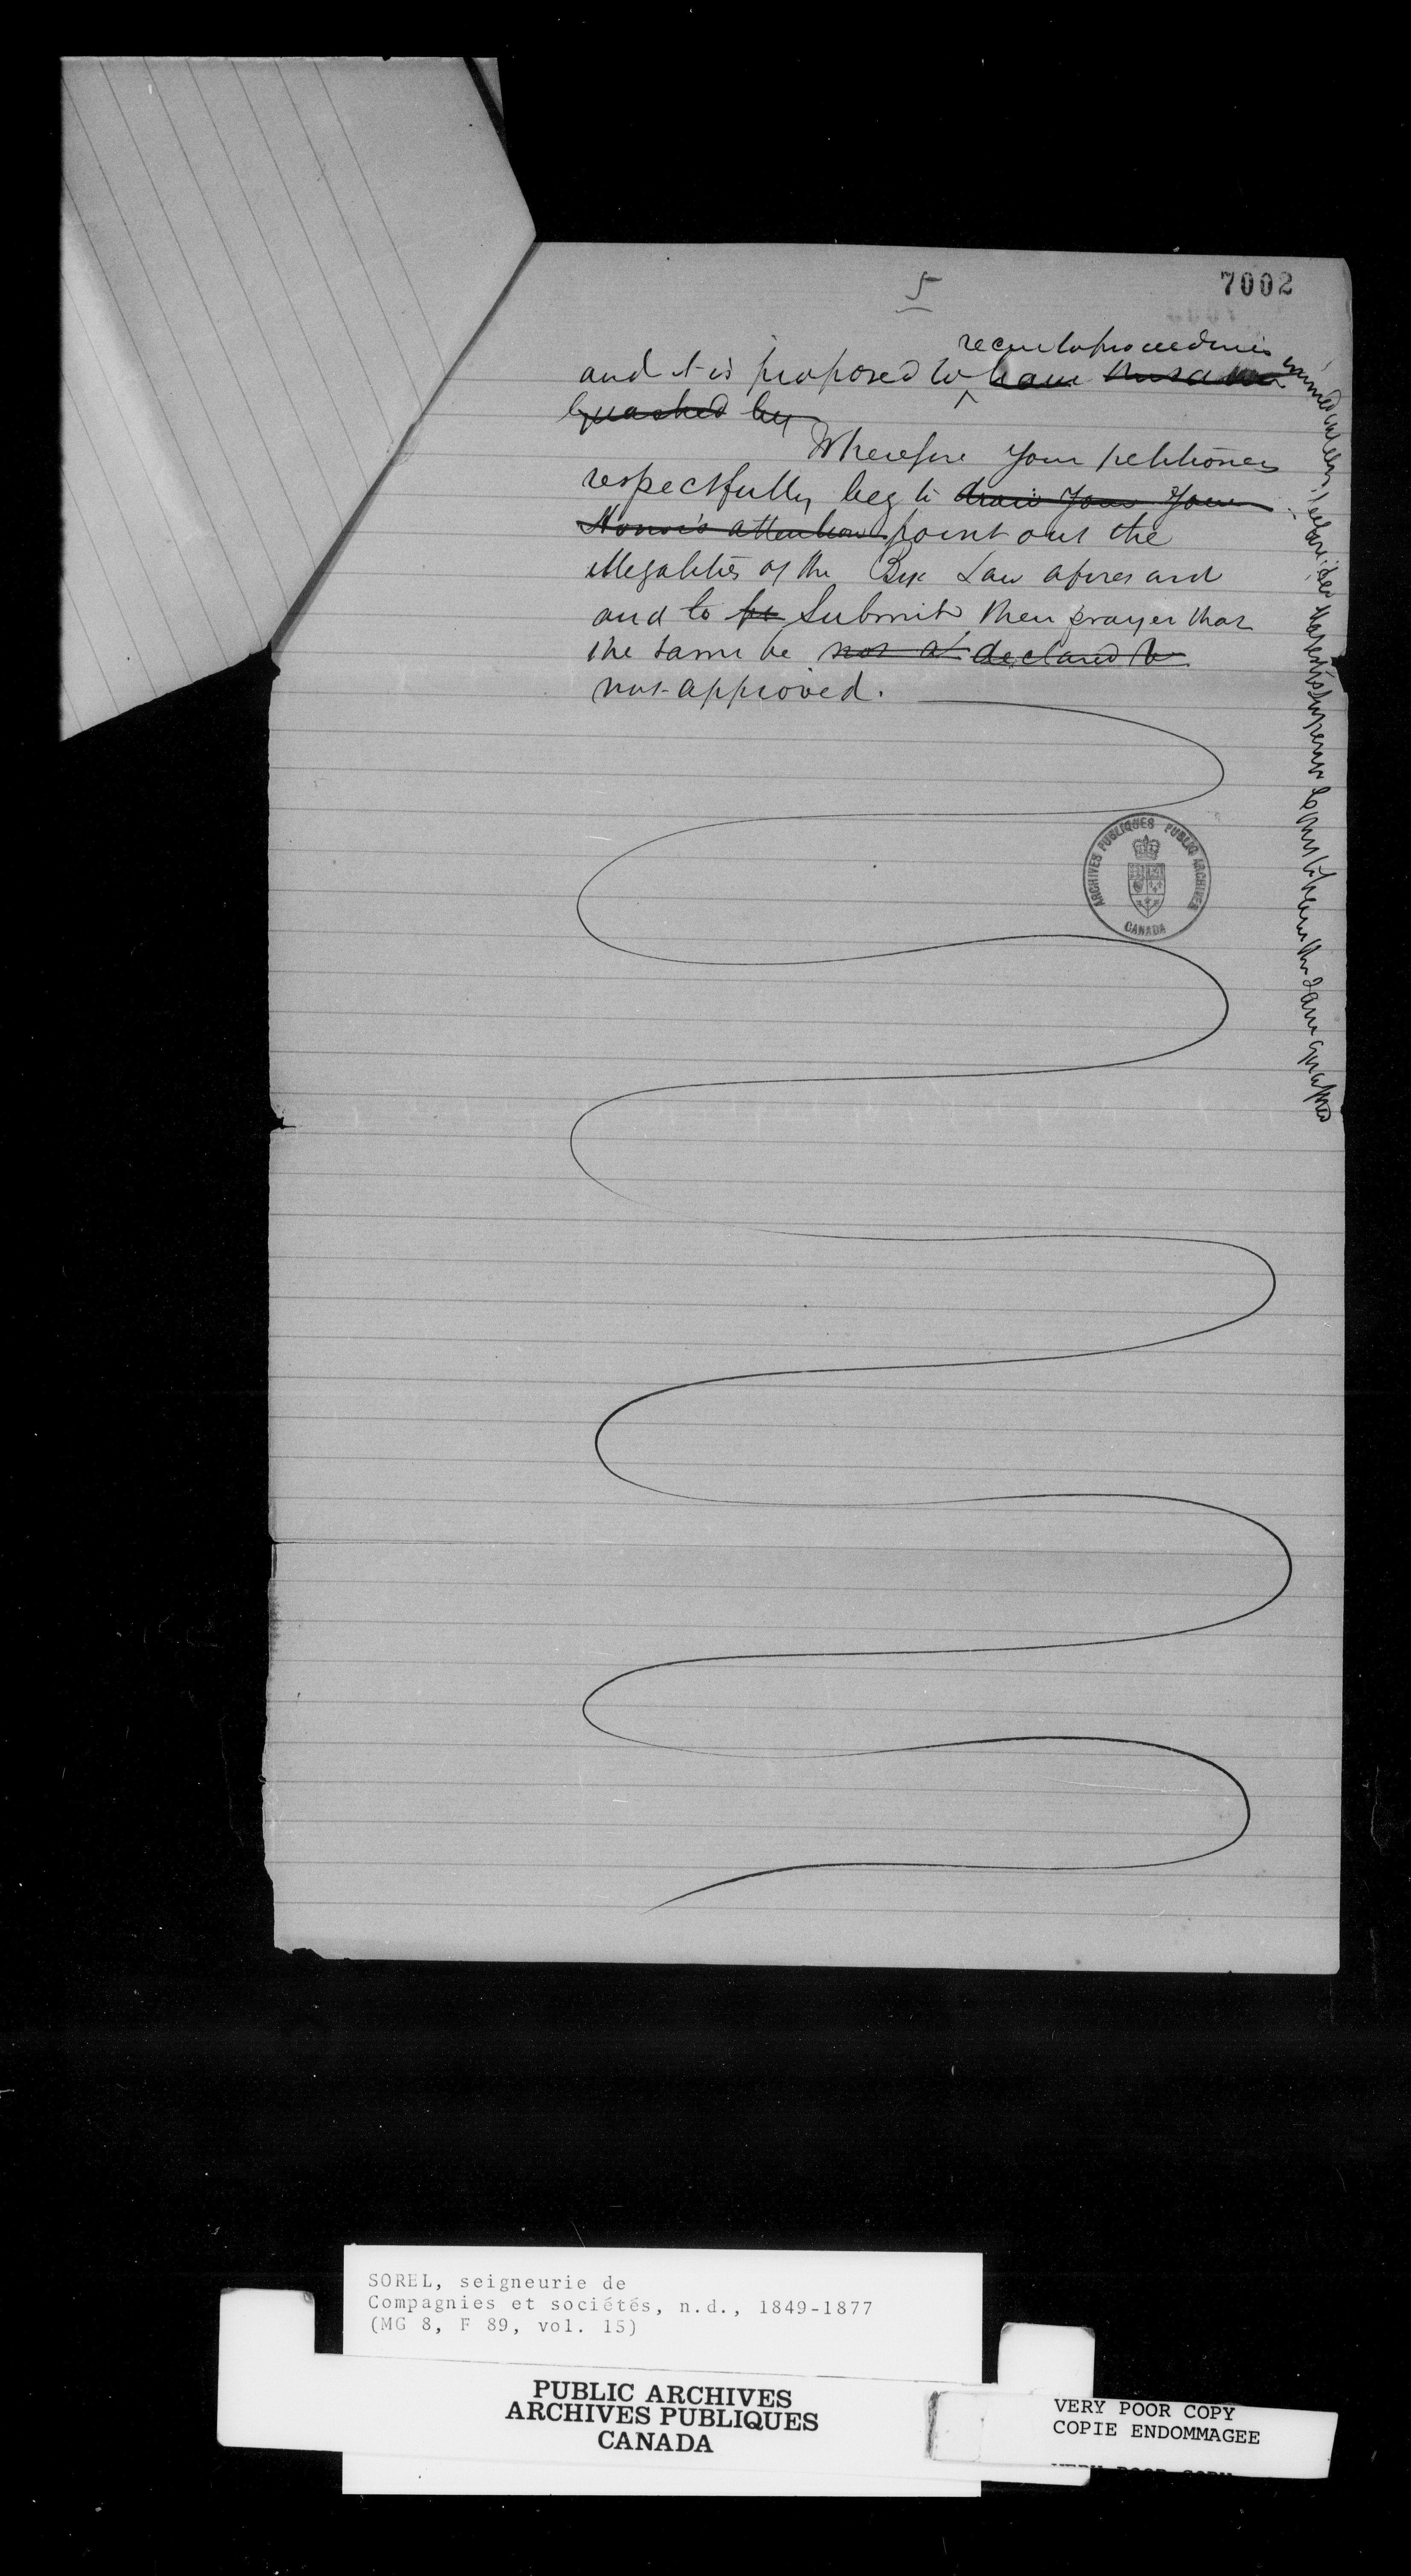 5
7002
recur to proceedings immediately
and it is proposed to have the same
quashed by
Wherefore your petitioners
respectfully beg to draw your your
Honor's attention point out the
illegalities of the Bye Law aforesaid
and to pe submit their prayer that
the same be not a declared to
not approved.
to have the same quashed
ARCHIVES PUBLIQUES PUBLIC ARCHIVES
CANADA
SOREL, seigneurie de
Compagnies et sociétés, n.d., 1849-1877
(MG 8, F 89, vol. 15)
PUBLIC ARCHIVES
ARCHIVES PUBLIQUES
CANADA
VERY POOR COPY
COPIE ENDOMMAGEE
VERY POOR COPY